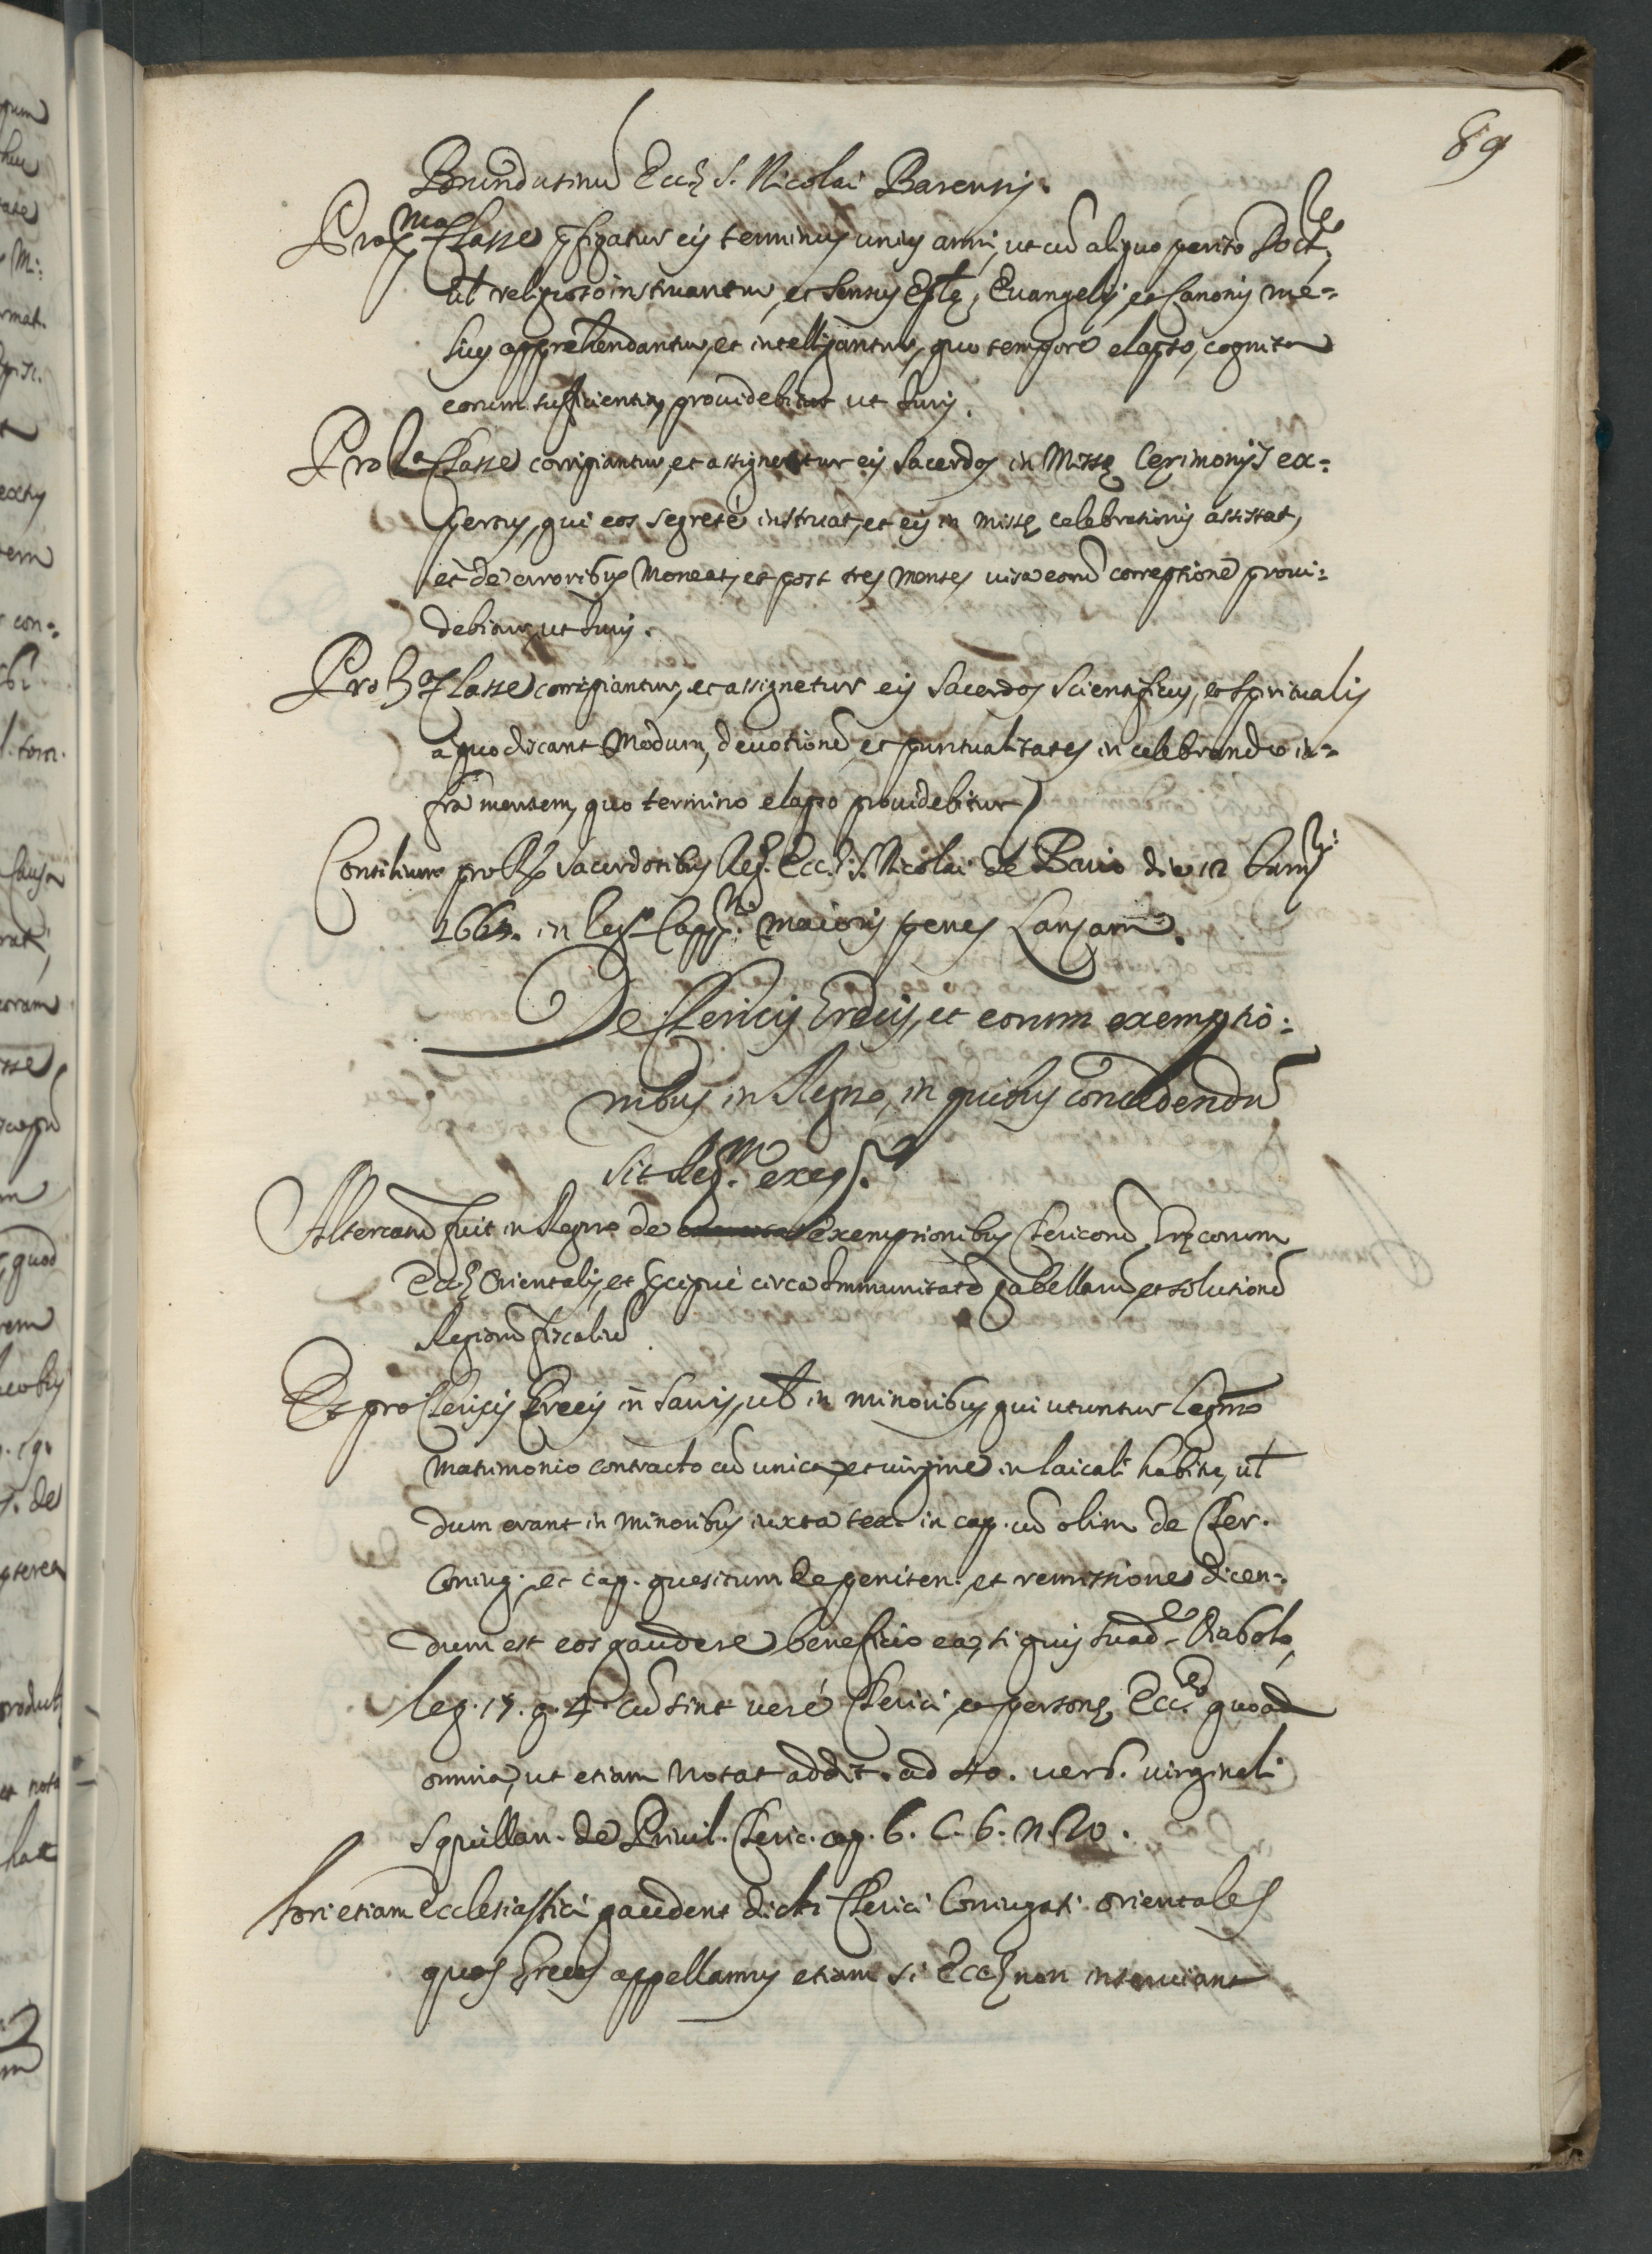 89
Brundusinũ Eccę S. Nicolai Barensis.
Pro p.ma Classe p̃figatur eis terminus unius anni, ut cũ aliquo perito Doct.re
ul̃ religioso instruantur, et sensus Ep̃lę, Euangelij, et Canonis me=
lius apprehendantur, et intelligantur, quo tempore elapso, cognita
eorum sufficientia, prouidebitur ut Juris.
Pro 2.a Classe corrigiantur, et assignetur eis Sacerdos in Missę Cerimonijs ex=
pertus, qui eos segretè instruat, et eis in missę celebrationis assistat,
et de erroribus Moneat, et post tres menses uisa eorũ correptione proui=
debitur, ut Juris.
Pro 3.a Classe corrigiantur, et assignetur eis Sacerdos scientificus, et spiritualis
a quo dicant Modum, deuotionẽ, et puntualitates in celebrando in=
fra mensem, quo termino elapso prouidebitur
Consilium pro sacerdotibus Reg. Eccl. S. Nicolai de Bario die 12
166 in Capp.ni maioris penes Lanzam.
De Clericis Grecis, et eorum exemptio=
nibus in Regno, in quibus concedendũ
sit Reg.m exeq.r
Altercatũ fuit in Regno de exemptionibus Clericorũ Gręcorum
Eccę Orientalis, et p̃cipuè circa Immunitatẽ gabellarũ, et solutionẽ
Regiorũ fiscaliũ.
Et pro Clericis Grecis in Sacris, ul̃ in minoribus, qui utuntur legmo
Matrimonio contracto cũ unica, et uirgine in laicali habitu, ul̃
dum erant in minoribus iuxta tex. in cap. cũ olim de Cler.
Coniug. et cap. quesitum de peniten. et remissione dicen=
dum est eos gaudere beneficio ca. si quis suad.e Diabolo,
leg. 17. q. 4. cũ sint uerè Clerici, et personę Ecc. quoad
omnia, ut etiam notat addit. ad verb. uirginali
Squillan. de Priuil. Cleric. cap. 6. C. 6. n. 20.
fori etiam ecclesiastici gaudent dicti Clerici Coniugati orientales
quos Grecos appellamus etiam si Eccę non inseruiant